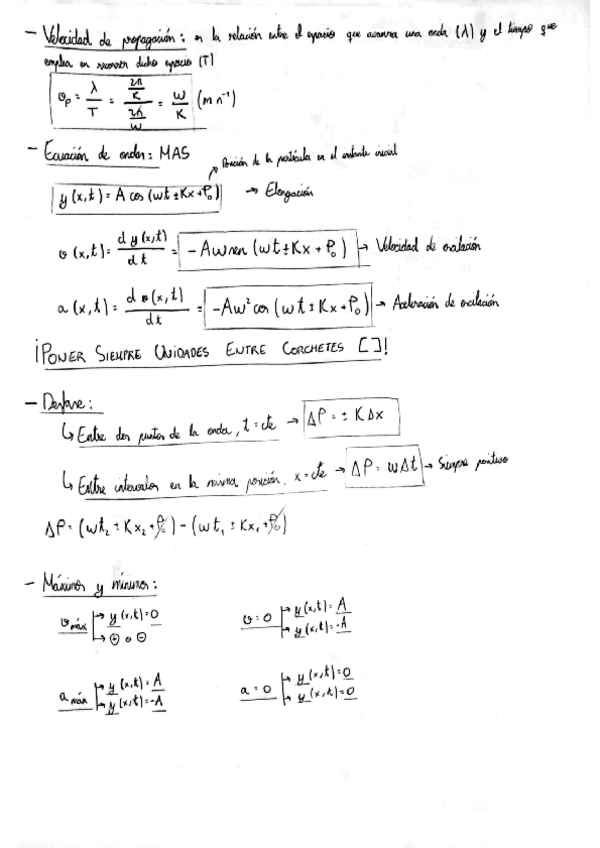 - Velocidad de propagación: es la relación entre el espacio que avanza una onda (λ) y el tiempo que
emplea en recorrer dicho espacio (T)
v_p = λ/T = (2π/K)/(2π/ω) = ω/K (m s⁻¹)
- Ecuación de ondas: MAS
Posición de la partícula en el instante inicial
y(x,t) = A cos (ωt ± Kx + φ₀) → Elongación
v(x,t) = d y(x,t)/dt = -Aω sen (ωt ± Kx + φ₀) → Velocidad de oscilación
a(x,t) = d v(x,t)/dt = -Aω² cos (ωt ± Kx + φ₀) → Aceleración de oscilación
¡PONER SIEMPRE UNIDADES ENTRE CORCHETES []!
- Desfase:
↳ Entre dos puntos de la onda, t = cte → Δφ = ± KΔx
↳ Entre intervalos en la misma posición, x = cte → Δφ = ωΔt → Siempre positivo
Δφ = (ωt₂ ± Kx₂ + φ₀) - (ωt₁ ± Kx₁ + φ₀)
- Máximos y mínimos:
v máx → y(x,t) = 0
→ ⊕ o ⊖
v = 0 → y(x,t) = A
→ y(x,t) = -A
a máx → y(x,t) = A
→ y(x,t) = -A
a = 0 → y(x,t) = 0
→ y(x,t) = 0